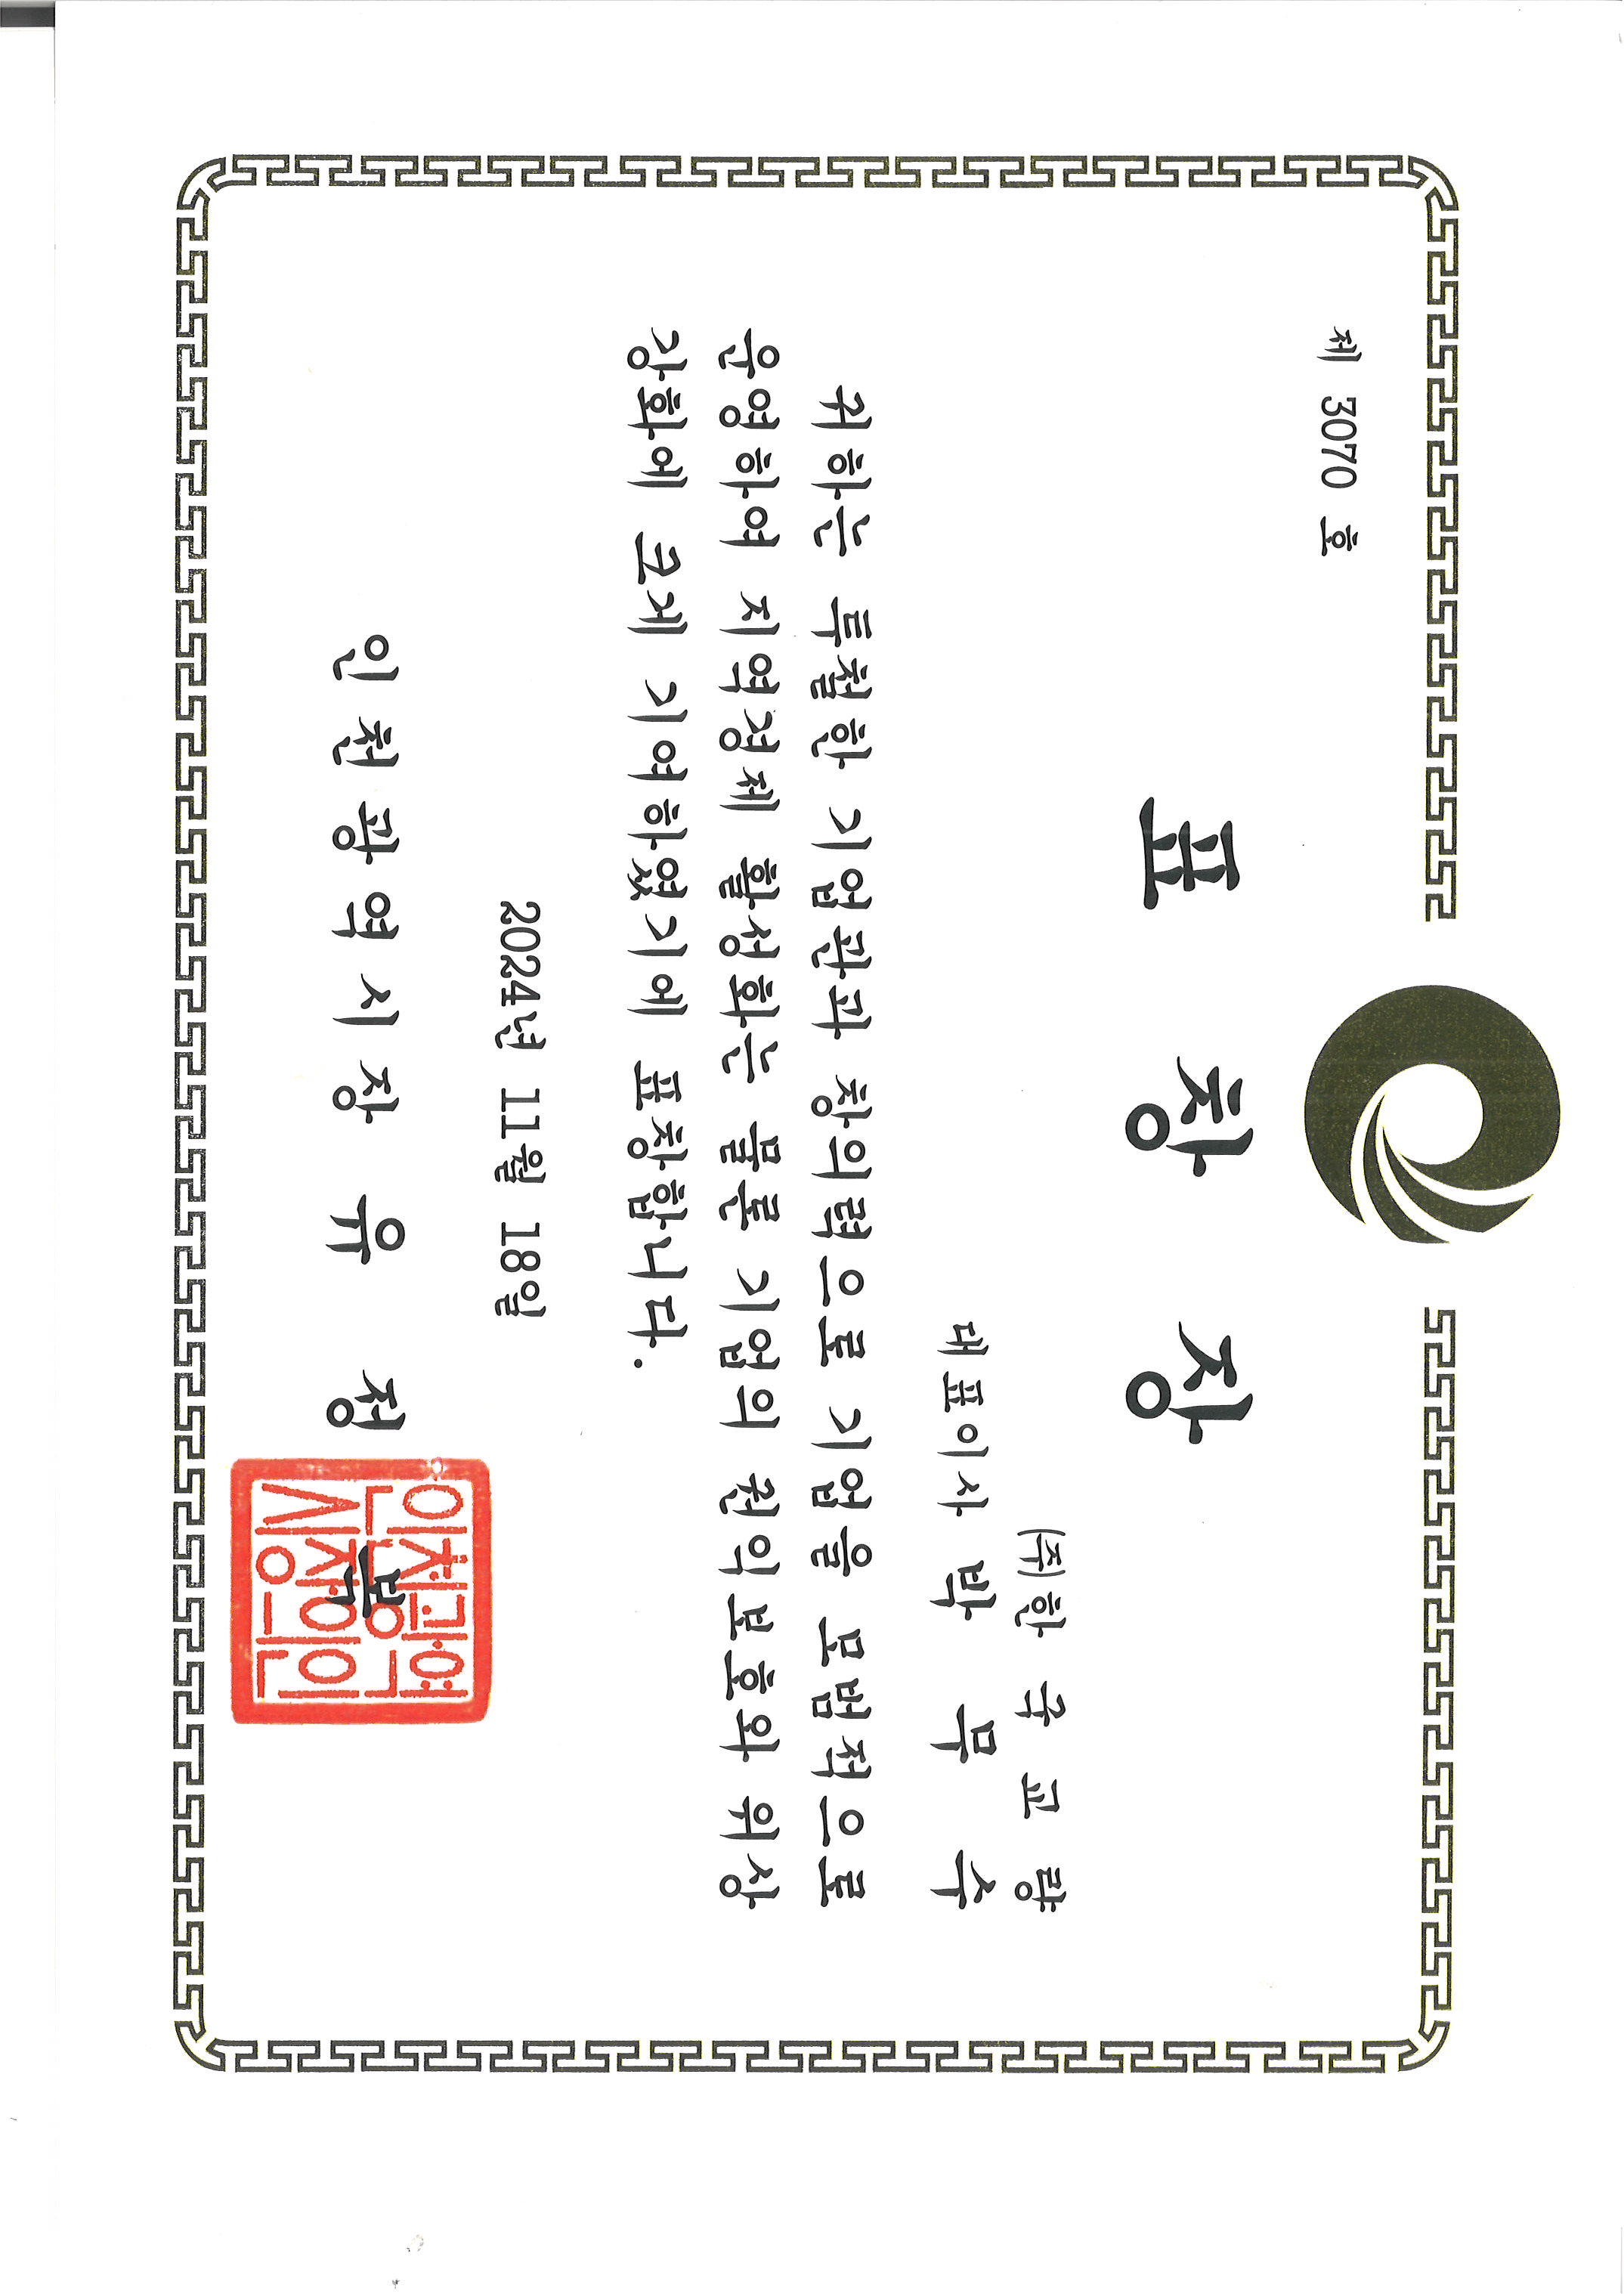 제 3070 호
표 창 장
(주)한 국 교 량
대표이사 박 무 수
귀하는 투철한 기업관과 창의력으로 기업을 모범적으로
운영하여 지역경제 활성화는 물론 기업의 권익보호와 위상
강화에 크게 기여하였기에 표창합니다.
2024년 11월 18일
인천광역시장 유 정 복
인천광역
시장의인